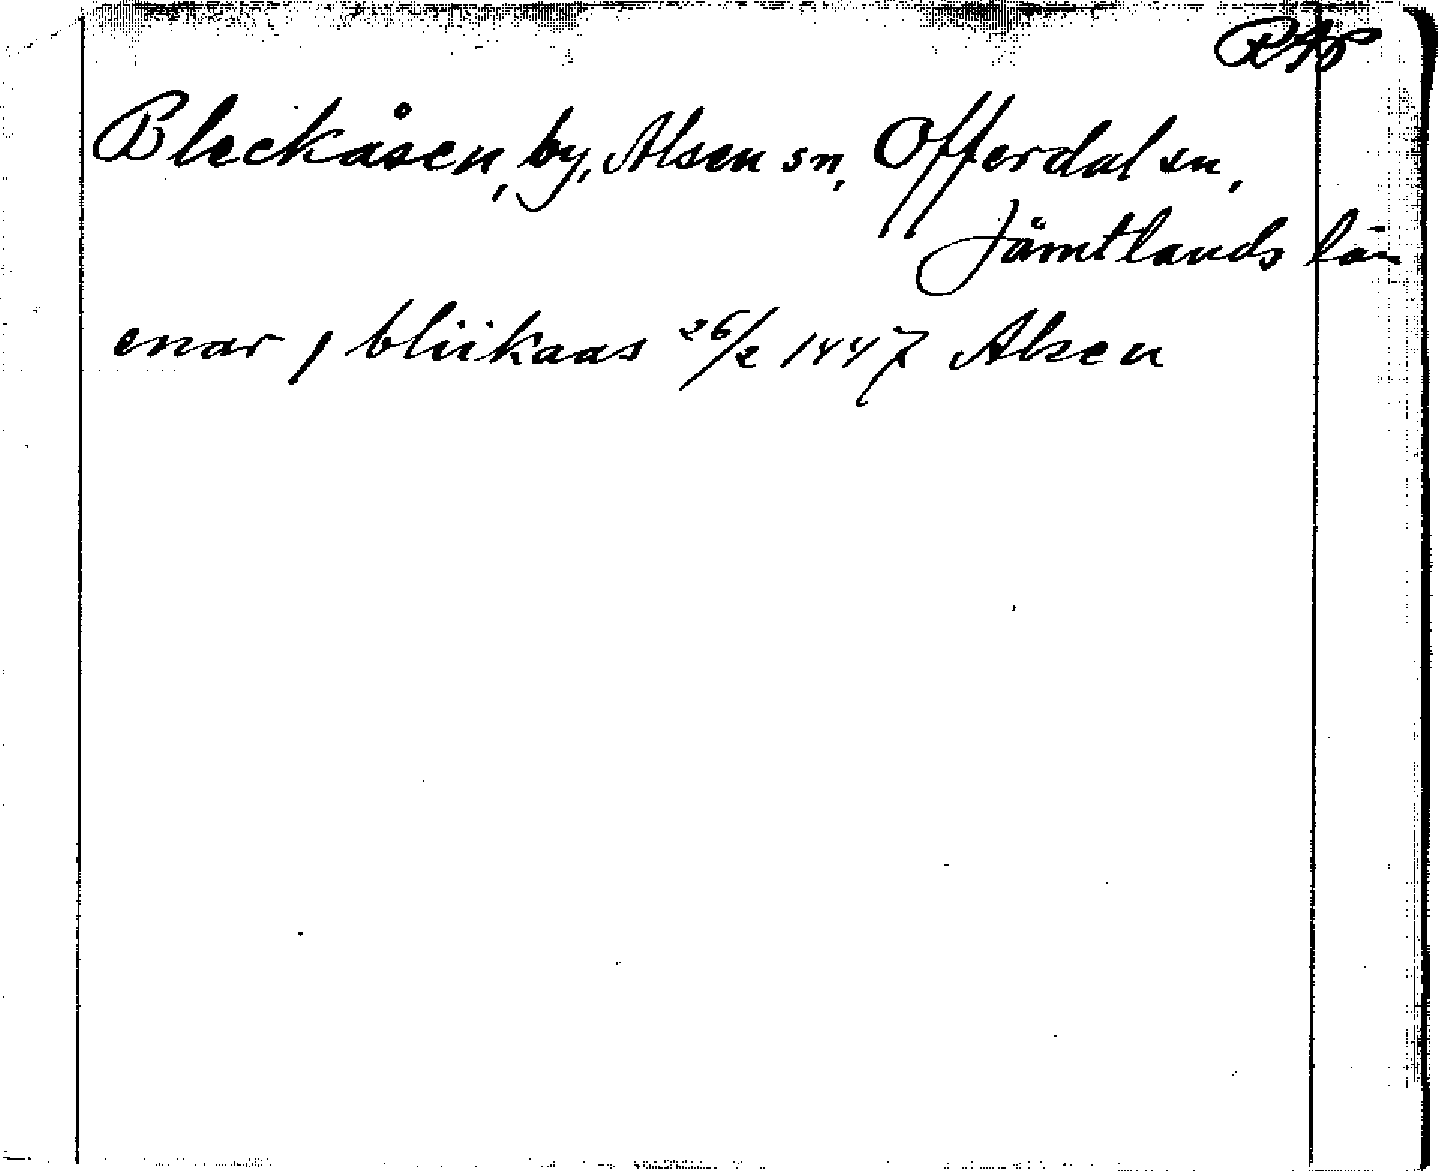 RAp
Bleckåsen, by, Alsen sn, Offerdal sn,
Jämtlands län
enar j bliikaas 26/2 1447 Alsen